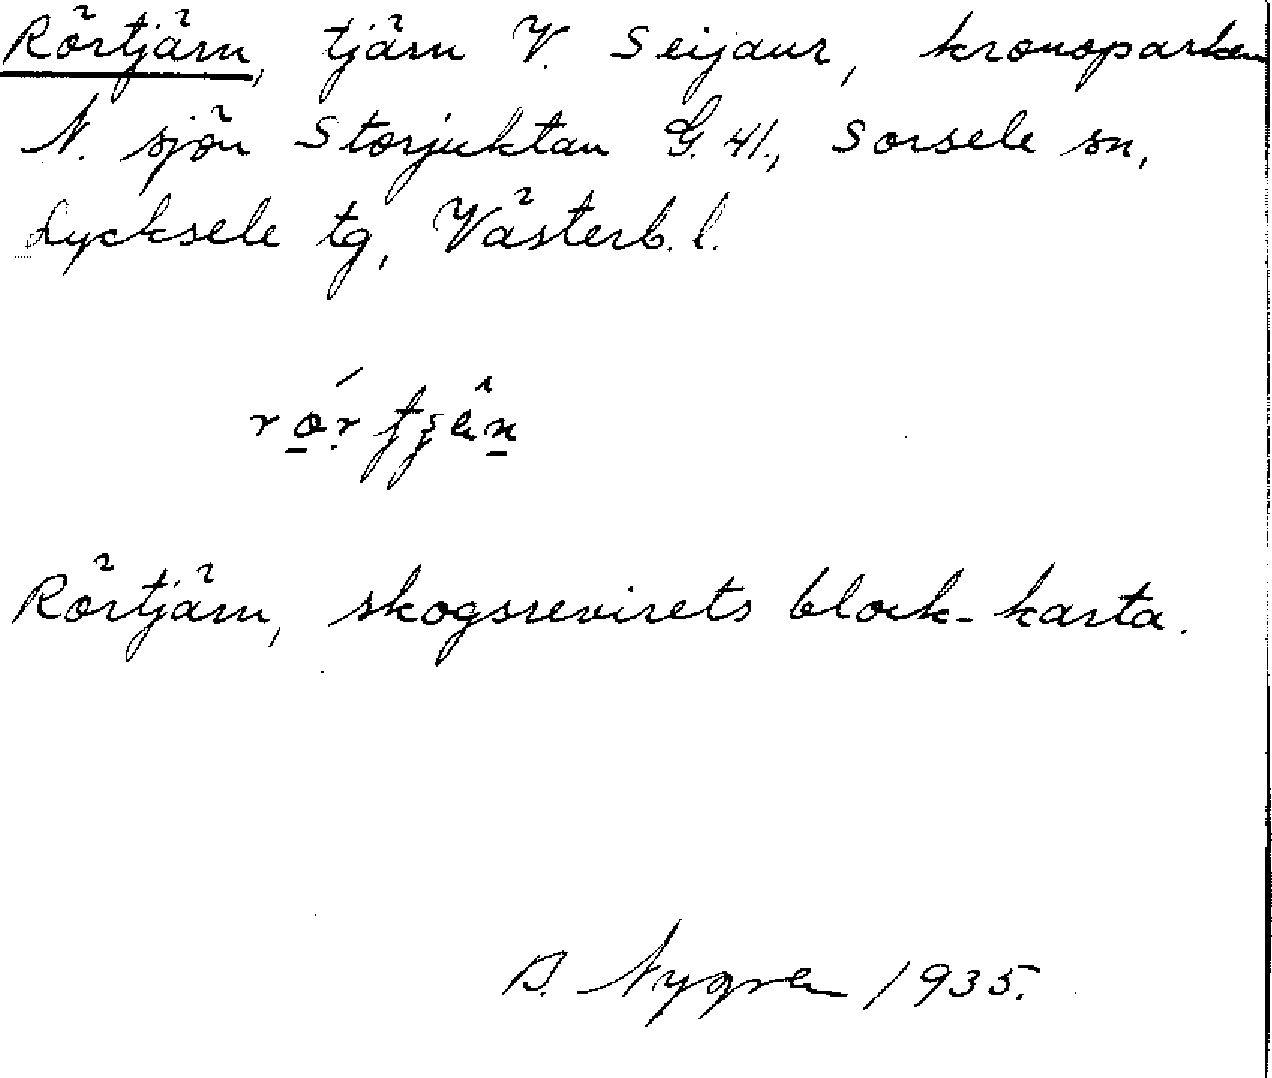 Rörtjärn, tjärn V. Seijaur, kronoparken
N. sjön Storjuktan G. 41., Sorsele sn,
Lycksele tg, Västerb. l.
Rörtjärn, skogsrevirets block-karta.
Nygren 1935.